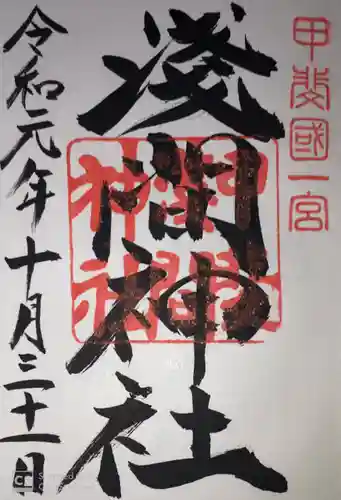 甲斐國一宮
淺間神社
淺間神社
令和元年十月三十一日